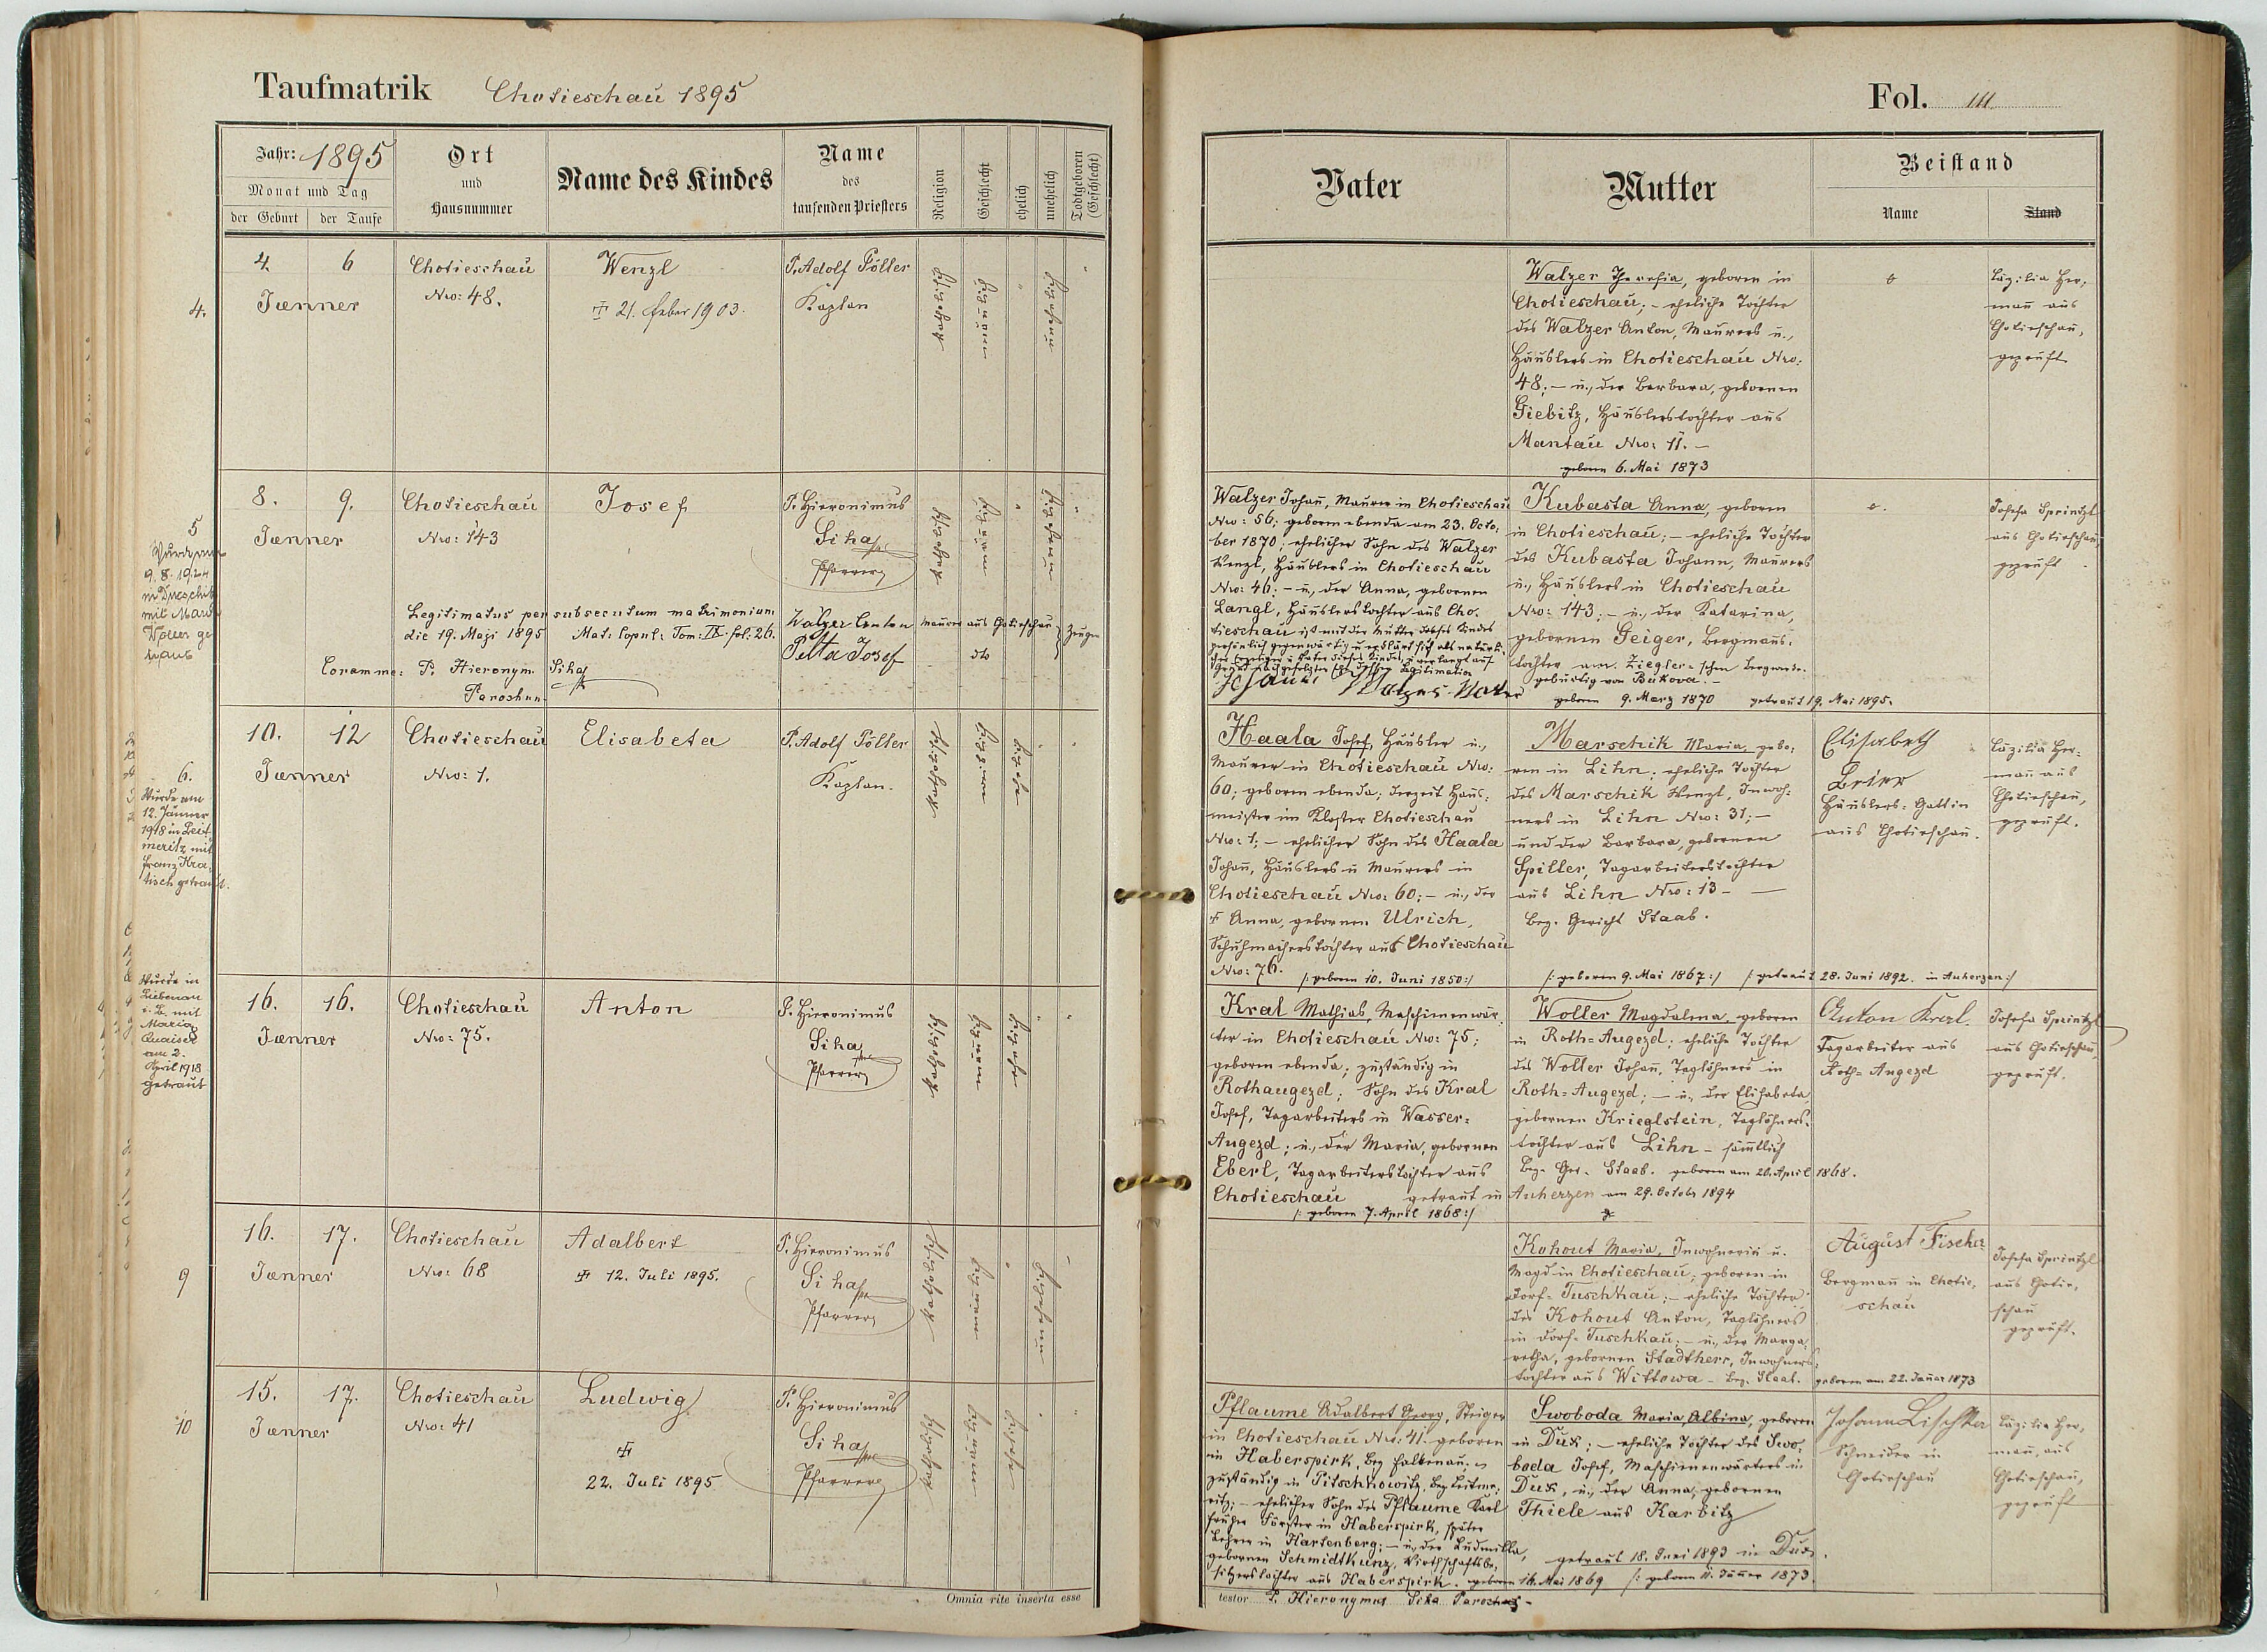 Taufmatrik Chotieschau 1895
Jahr: 1895
Monat und Tag
der Geburt
der Taufe
Ort
und
Hausnummer
Name des Kindes
Name
des
taufenden Priesters
Religion
Geschlecht
ehelich
unehelich
Todtgeboren
(Geschlecht)
4.
4. 6
Jænner
Chotieschau
Nro: 48.
Wenzl
21. Feber 1903.
P. Adolf Pölter
Kaplan
5
9. 8. 1924
mit
8. 9.
Jænner
Chotieschau
Nro: 143
Josef
P. Hieronimus
Siha
Pfarrer
Legitimatus per subsecutum matrimonium
die 19. Maji 1895 Mat: Copul: Tom: IX. fol: 26.
Coram me: P. Hieronym. Siha
Parochus
Walzer Anton Maurer aus Chotieschau
Pelta Josef dto
Zeugen
6.
Wurde am
12. Jänner
1918 in Leit-
meritz mit
Franz Kra-
tisch getraut.
10. 12
Jænner
Chotieschau
Nro: 1.
Elisabeta
P. Adolf Pölter
Kaplan.
Wurde in
Liebenau
i. B. mit
Maria
Quaiser
am 2.
April 1918
getraut
16. 16.
Jænner
Chotieschau
Nro: 75.
Anton
P. Hieronimus
Siha
Pfarrer
9
16. 17.
Jænner
Chotieschau
Nro: 68
Adalbert
12. Juli 1895.
P. Hieronimus
Siha
Pfarrer
10
15. 17.
Jænner
Chotieschau
Nro: 41
Ludwig
22. Juli 1895
P. Hieronimus
Siha
Pfarrer
Omnia rite inserta esse
Fol. 111
Vater
Mutter
Beistand
Name
Stand
Walzer Theresia, geboren in
Chotieschau; - eheliche Tochter
des Walzer Anton, Maurers u.,
Häuslers in Chotieschau Nro:
48; - u., der Barbara, gebornen
Giebitz, Häuslerstochter aus
Mantau Nro: 11. -
geboren 6. Mai 1873
Cäzilia Her-
mañ aus
Chotieschau,
geprüft
Walzer Johañ, Maurer in Chotieschau
Nro: 56; geboren ebenda am 23. Octo-
ber 1870; ehelicher Sohn des Walzer
Wenzl, Häuslers in Chotieschau
Nro: 46; - u., der Anna, gebornen
Langl, Häuslerstochter aus Cho-
tieschau ist mit der Mutter dieses Kindes
persönlich gegenwärtig u. erklärt sich als natürli-
Johann Walzer Vater
Kubasta Anna, geboren
in Chotieschau; - eheliche Tochter
des Kubasta Johann, Maurers
u., Häuslers in Chotieschau
Nro: 143; - u., der Katarina,
gebornen Geiger, Bergmañs-
tochter am Ziegler-schen Bergwerke
gebürtig von Bukova. -
geboren 9. März 1870 getraut 19. Mai 1895.
Josefa Sprintzl
aus Chotieschau,
geprüft
Haala Josef, Häusler u.,
Maurer in Chotieschau Nro:
60; geboren ebenda; derzeit Haus-
meister im Kloster Chotieschau
Nro: 1; - ehelicher Sohn des Haala
Johañ, Häuslers u Maurers in
Chotieschau Nro: 60; - u., der
Anna, gebornen Ulrich,
Schuhmacherstochter aus Chotieschau
Nro: 76. /: geboren 10. Juni 1850:/
Marschik Maria, gebo-
ren in Lihn; eheliche Tochter
des Marschik Wenzl, Inwoh-
ners in Lihn Nro: 31; -
und der Barbara, gebornen
Spiller, Tagarbeiterstochter
aus Lihn Nro: 13 -
Bez. Gericht Staab.
/: geboren 9. Mai 1867:/ /: getraut 28. Juni 1892. in Auherzen:/
Elisabeth
Beier
Häuslers-Gattin
aus Chotieschau.
Cäzilia Her-
mañ aus
Chotieschau,
geprüft.
Kral Mathias, Maschinenwär-
ter in Chotieschau Nro: 75;
geboren ebenda; zuständig in
Rothaugezd; Sohn des Kral
Josef, Tagarbeiters in Wasser-
Augezd; u., der Maria, gebornen
Eberl, Tagarbeiterstochter aus
Chotieschau getraut in Auherzen am 29. Octobr 1894
/: geboren 7. April 1868:/
Woller Magdalena, geboren
in Roth-Augezd; eheliche Tochter
des Woller Johañ, Taglöhners in
Roth-Augezd; - u., der Elisabeta,
gebornen Krieglstein, Taglöhners-
tochter aus Lihn - sämtlich
Bez. Ger. Staab. geboren am 20. April 1868.
Anton Kral
Tagarbeiter aus
Roth-Augezd
Josefa Sprintzl
aus Chotieschau,
geprüft.
Kohout Maria, Inwohnerin u.
Magd in Chotieschau; geboren in
Dorf-Tuschkau; - eheliche Tochter
des Kohout Anton, Taglöhners
in Dorf-Tuschkau; - u., der Marga-
retha, gebornen Stadtherr, Inwohners-
tochter aus Wittowa - Bez. Staab. geboren am 22. Januar 1873
August Fischer
Bergmañ in Chotie-
schau
Josefa Sprintzl
aus Chotie-
schau
geprüft.
Pflaume Adalbert Georg, Steiger
in Chotieschau Nro: 41. geboren
in Haberspirk, Bez Falkenau. u
zuständig in Pitschkowitz, Bez Leitme-
ritz; - ehelicher Sohn des Pflaume Karl
früher Förster in Haberspirk, später
Lehrer in Hartenberg; - u., der Ludmilla,
gebornen Schmidtkunz, Wirthschaftsbe-
sitzerstochter aus Haberspirk. geboren 16. Mai 1869 /: geboren 11. Jänner 1873.
Swoboda Maria, Albina, geboren
in Dux; - eheliche Tochter des Swo-
boda Josef, Maschinenwärters in
Dux, u., der Anna, gebornen
Thiele aus Karbitz
getraut 18. Juni 1893 in Dux.
Johann Lischka
Schneider in
Chotieschau
Cäzilia Her-
mañ, aus
Chotieschau,
geprüft
testor P. Hieronymus Siha Parochus -